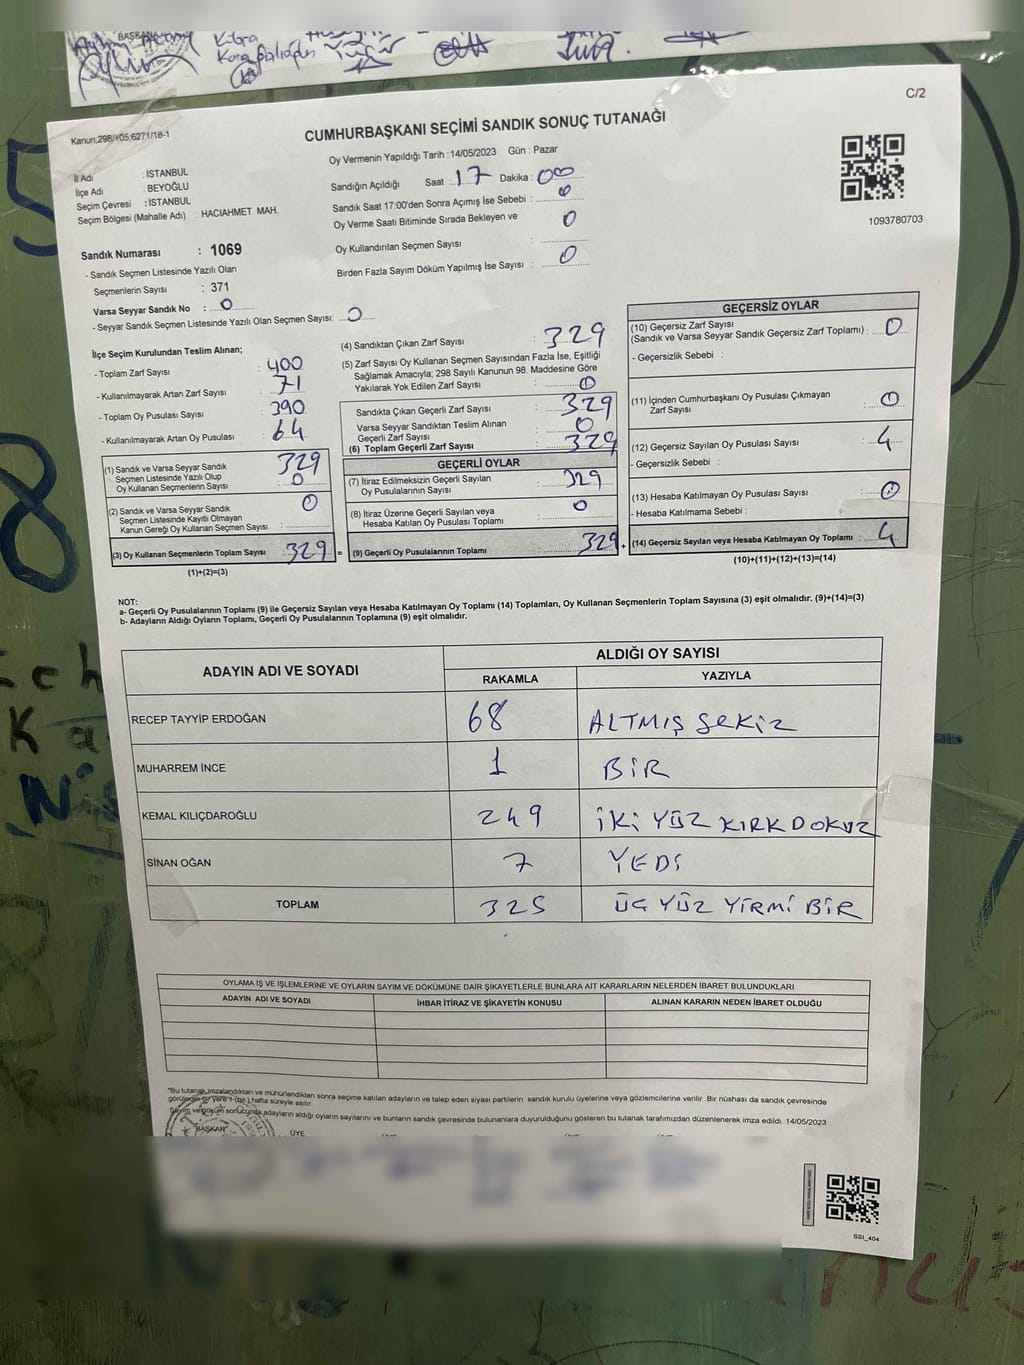 BAŞKAN
Kübra
C/2
Kanun:298/105;6271/18-1
CUMHURBAŞKANI SEÇİMİ SANDIK SONUÇ TUTANAĞI
İl Adı : İSTANBUL
İlçe Adı : BEYOĞLU
Seçim Çevresi : İSTANBUL
Seçim Bölgesi (Mahalle Adı) : HACIAHMET MAH.
Oy Vermenin Yapıldığı Tarih :14/05/2023 Gün : Pazar
Sandığın Açıldığı Saat : 17 Dakika : 00
Sandık Saat 17:00'den Sonra Açımış İse Sebebi : 0
Oy Verme Saati Bitiminde Sırada Bekleyen ve 0
Oy Kullandırılan Seçmen Sayısı :
Birden Fazla Sayım Döküm Yapılmış İse Sayısı : 0
1093780703
Sandık Numarası : 1069
- Sandık Seçmen Listesinde Yazılı Olan
Seçmenlerin Sayısı : 371
Varsa Seyyar Sandık No : 0
- Seyyar Sandık Seçmen Listesinde Yazılı Olan Seçmen Sayısı: 0
İlçe Seçim Kurulundan Teslim Alınan;
- Toplam Zarf Sayısı : 400
- Kullanılmayarak Artan Zarf Sayısı : 71
- Toplam Oy Pusulası Sayısı : 390
- Kullanılmayarak Artan Oy Pusulası : 64
(1) Sandık ve Varsa Seyyar Sandık 329
Seçmen Listesinde Yazılı Olup 0
Oy Kullanan Seçmenlerin Sayısı :
(2) Sandık ve Varsa Seyyar Sandık 0
Seçmen Listesinde Kayıtlı Olmayan
Kanun Gereği Oy Kullanan Seçmen Sayısı :
(3) Oy Kullanan Seçmenlerin Toplam Sayısı : 329 =
(1)+(2)=(3)
(4) Sandıktan Çıkan Zarf Sayısı : 329
(5) Zarf Sayısı Oy Kullanan Seçmen Sayısından Fazla İse, Eşitliği
Sağlamak Amacıyla; 298 Sayılı Kanunun 98. Maddesine Göre
Yakılarak Yok Edilen Zarf Sayısı : 0
Sandıkta Çıkan Geçerli Zarf Sayısı : 329
Varsa Seyyar Sandıktan Teslim Alınan 0
Geçerli Zarf Sayısı :
(6) Toplam Geçerli Zarf Sayısı : 329
GEÇERLİ OYLAR
(7) İtiraz Edilmeksizin Geçerli Sayılan 329
Oy Pusulalarının Sayısı :
(8) İtiraz Üzerine Geçerli Sayılan veya 0
Hesaba Katılan Oy Pusulası Toplamı :
(9) Geçerli Oy Pusulalarının Toplamı : 329 +
GEÇERSİZ OYLAR
(10) Geçersiz Zarf Sayısı
(Sandık ve Varsa Seyyar Sandık Geçersiz Zarf Toplamı) : 0
- Geçersizlik Sebebi :
(11) İçinden Cumhurbaşkanı Oy Pusulası Çıkmayan
Zarf Sayısı : 0
(12) Geçersiz Sayılan Oy Pusulası Sayısı : 4
- Geçersizlik Sebebi :
(13) Hesaba Katılmayan Oy Pusulası Sayısı : 0
- Hesaba Katılmama Sebebi :
(14) Geçersiz Sayılan veya Hesaba Katılmayan Oy Toplamı : 4
(10)+(11)+(12)+(13)=(14)
NOT:
a- Geçerli Oy Pusulalarının Toplamı (9) ile Geçersiz Sayılan veya Hesaba Katılmayan Oy Toplamı (14) Toplamları, Oy Kullanan Seçmenlerin Toplam Sayısına (3) eşit olmalıdır. (9)+(14)=(3)
b- Adayların Aldığı Oyların Toplamı, Geçerli Oy Pusulalarının Toplamına (9) eşit olmalıdır.
ADAYIN ADI VE SOYADI ALDIĞI OY SAYISI
RAKAMLA YAZIYLA
RECEP TAYYİP ERDOĞAN 68 ALTMIŞ SEKİZ
MUHARREM İNCE 1 BİR
KEMAL KILIÇDAROĞLU 249 İKİ YÜZ KIRK DOKUZ
SİNAN OĞAN 7 YEDİ
TOPLAM 325 ÜÇ YÜZ YİRMİ BİR
OYLAMA İŞ VE İŞLEMLERİNE VE OYLARIN SAYIM VE DÖKÜMÜNE DAİR ŞİKAYETLERLE BUNLARA AİT KARARLARIN NELERDEN İBARET BULUNDUKLARI
ADAYIN ADI VE SOYADI İHBAR İTİRAZ VE ŞİKAYETİN KONUSU ALINAN KARARIN NEDEN İBARET OLDUĞU
*Bu tutanak imzalandıktan ve mühürlendikten sonra seçime katılan adayların ve talep eden siyasi partilerin sandık kurulu üyelerine veya gözlemcilerine verilir. Bir nüshası da sandık çevresinde
görülecek bir yere 1 (bir) hafta süreyle asılır.
Sayım ve döküm sonucunda adayların aldığı oyların sayılarını ve bunların sandık çevresinde bulunanlara duyurulduğunu gösteren bu tutanak tarafımızdan düzenlenerek imza edildi. 14/05/2023
BAŞKAN
ÜYE
SSI_404